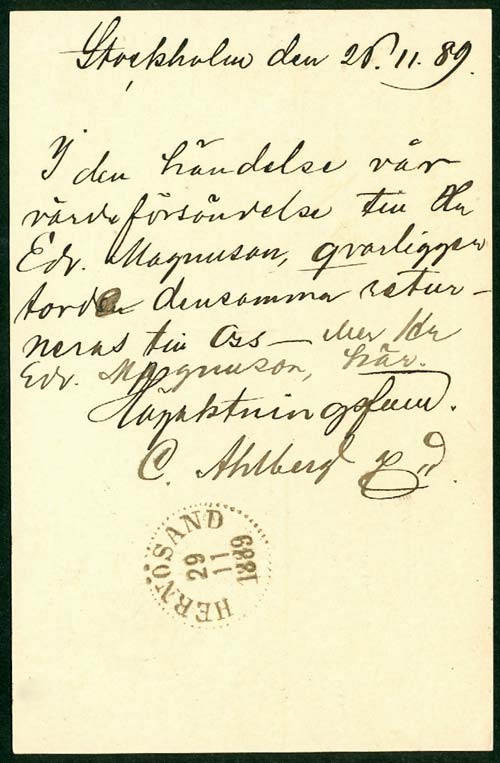 Stockholm den 26.11.89.
I den händelse vår
värdeförsändelse till Hr
Edv. Magnuson, qvarligger
torde densamma retur-
neras till oss — eller Hr
Edv. Magnuson, här.
Högaktningsfull.
C. Ahlberg
HERNÖSAND
29
11
1889